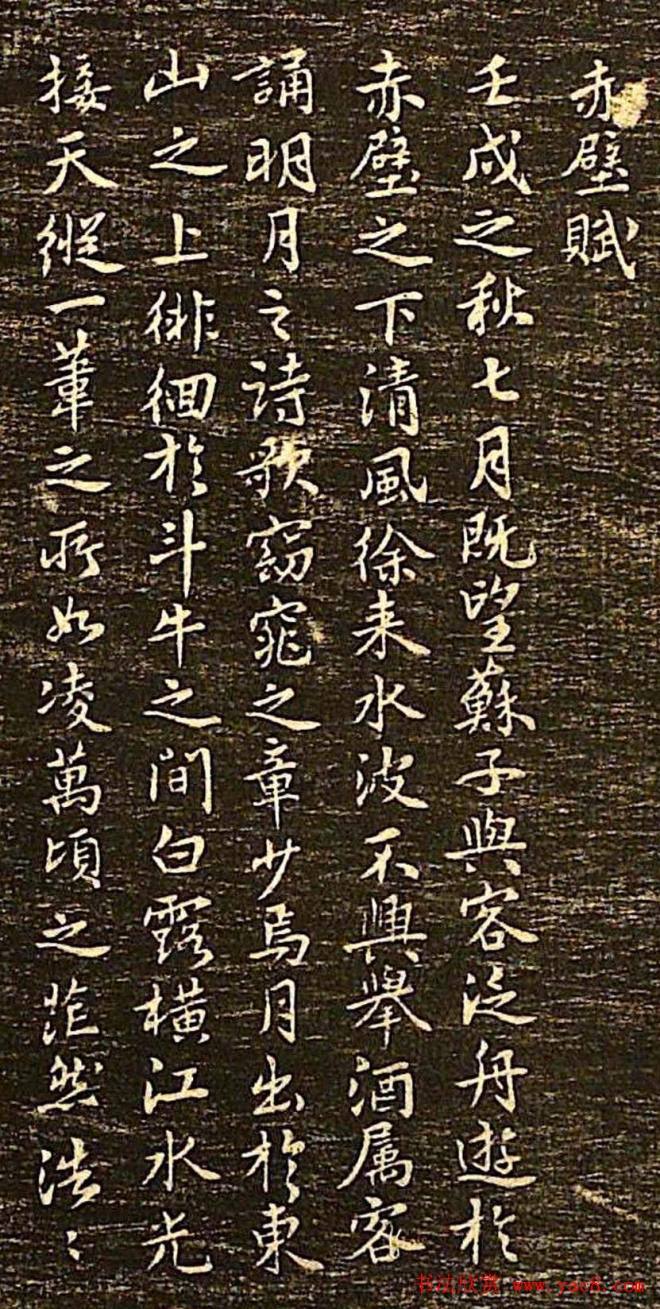 赤壁賦
壬戌之秋七月既望蘇子與客泛舟遊於
赤壁之下清風徐来水波不興舉酒属客
誦明月之詩歌窈窕之章少焉月出於東
山之上徘徊於斗牛之間白露横江水光
接天縱一葦之所如凌萬頃之茫然浩〻
书法欣赏 www.yac8.com